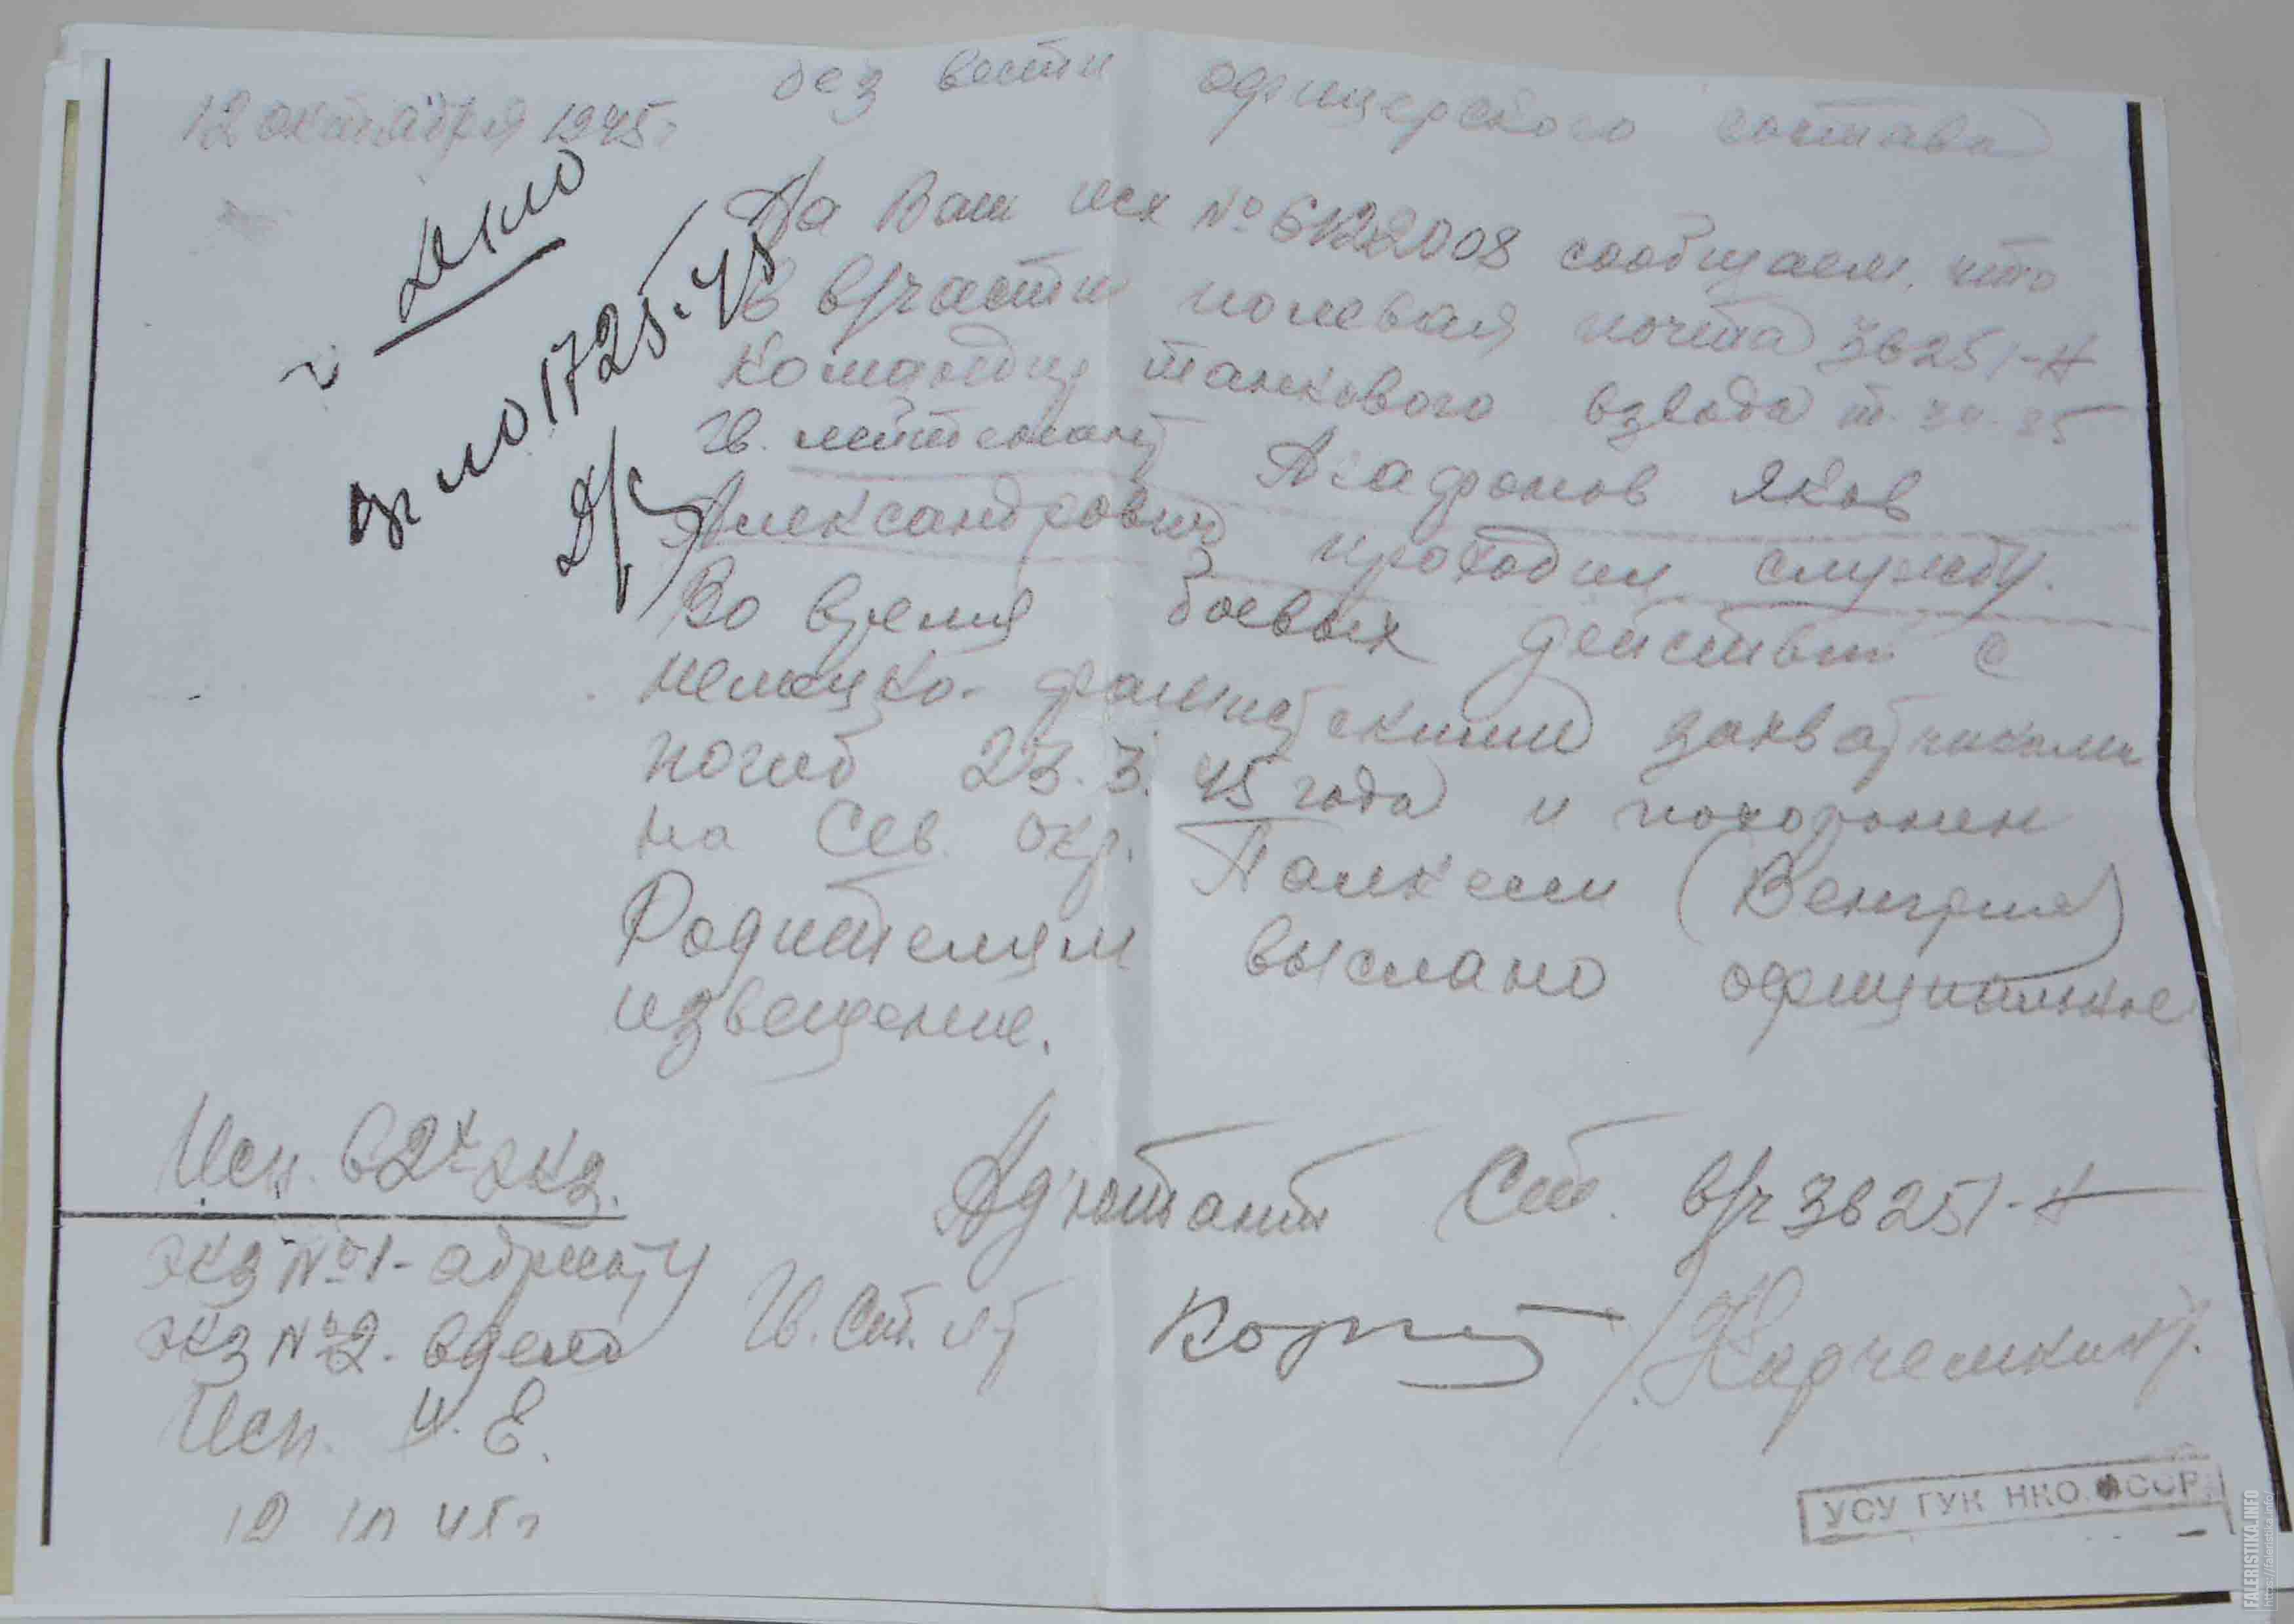 без вести офицерского состава
12 октября 1945 г
На Ваш исх № 6122008 сообщаем, что
в в/части полевая почта 36251-Н
командир танкового взвода т.
Гв. лейтенант Агафонов Яков
Александрович проходил службу.
Во время боевых действий с
немецко-фашистскими захватчиками
погиб 23.3.45 года и похоронен
на сев. окр. (Венгрия)
Родителям выслано официальное
извещение.
Исп. в 2х экз.
экз №1 - адресату
экз №2. в дело
Исп. Е.
12 45 г
Адъютант Ст. в/ч 36251-Н
Гв. Ст. лт
УСУ ГУК НКО СССР
FALERISTIKA.INFO